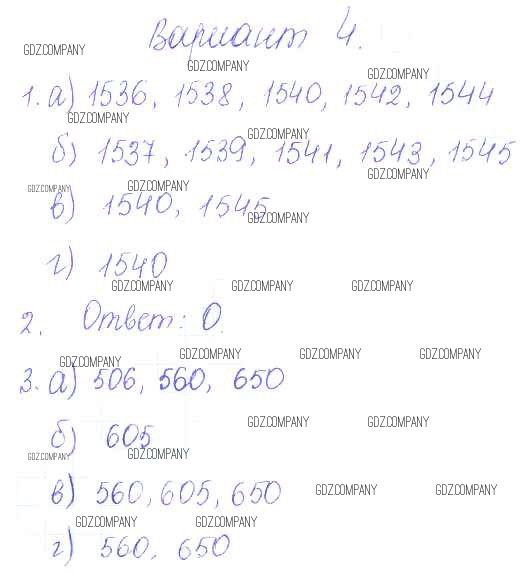 Вариант 4.
GDZ.COMPANY
GDZ.COMPANY
GDZ.COMPANY
1. а) 1536, 1538, 1540, 1542, 1544
GDZ.COMPANY
GDZ.COMPANY
б) 1537, 1539, 1541, 1543, 1545
GDZ.COMPANY
GDZ.COMPANY
GDZ.COMPANY
в) 1540, 1545
GDZ.COMPANY
г) 1540
GDZ.COMPANY GDZ.COMPANY GDZ.COMPANY
2. Ответ: 0.
GDZ.COMPANY GDZ.COMPANY GDZ.COMPANY GDZ.COMPANY
3. а) 506, 560, 650
GDZ.COMPANY GDZ.COMPANY
б) 605
GDZ.COMPANY GDZ.COMPANY
в) 560, 605, 650
GDZ.COMPANY GDZ.COMPANY
GDZ.COMPANY GDZ.COMPANY
г) 560, 650